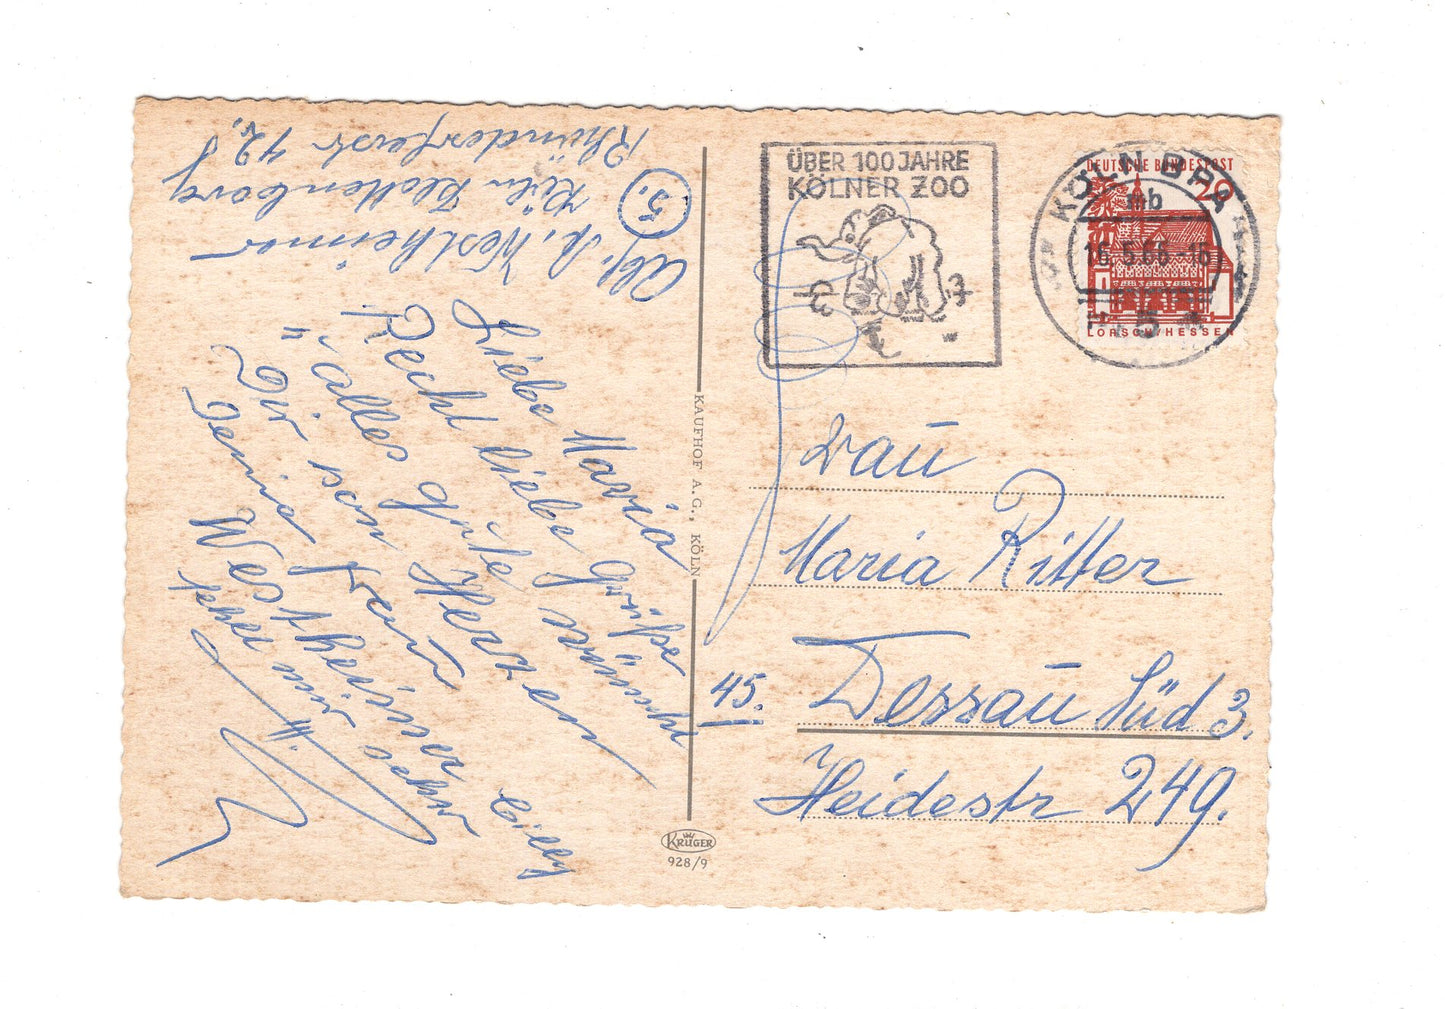 Abs. A. Westheimer
5. Köln Klettenberg
Rhöndorferstr 42,
Liebe Maria
Recht liebe Grüße
"alles gute wünscht
Dir von Herzen
Deine Frau
Westheimer
Cilly
KAUFHOF A.G., KÖLN
KRÜGER
928/9
ÜBER 100 JAHRE
KÖLNER ZOO
DEUTSCHE BUNDESPOST
20
LORSCH/HESSEN
KÖLN
mb
16.5.66-16
5
Frau
Maria Ritter
45. Dessau Süd 3.
Heidestr 249.